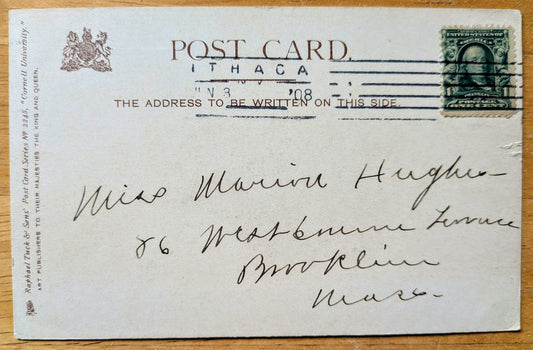 POST CARD.
ITHACA
'08
THE ADDRESS TO BE WRITTEN ON THIS SIDE.
Miss Marion Hughes
86 Westbourne Terrace
Brookline
Mass.
Raphael Tuck & Sons' Post Card Series No 2245, "Cornell University."
ART PUBLISHERS TO THEIR MAJESTIES THE KING AND QUEEN.